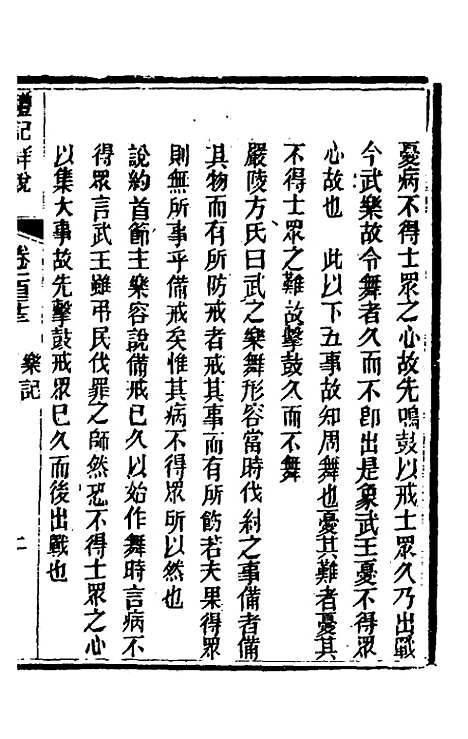 憂病不得士眾之心故先鳴鼓以戒士眾久乃出戰
今武樂故令舞者久而不卽出是象武王憂不得眾
心故也　此以下五事故知周舞也憂其難者憂其
不得士眾之難故擊鼓久而不舞
嚴陵方氏曰武之樂舞形容當時伐紂之事備者備
其物而有所防戒者戒其事而有所飭若夫果得眾
則無所事乎備戒矣惟其病不得眾所以然也
說約首節主樂容說備戒已久以始作舞時言病不
得眾言武王雖弔民伐罪之師然恐不得士眾之心
以集大事故先擊鼓戒眾已久而後出戰也
禮記詳說
卷一百十三
樂記
二